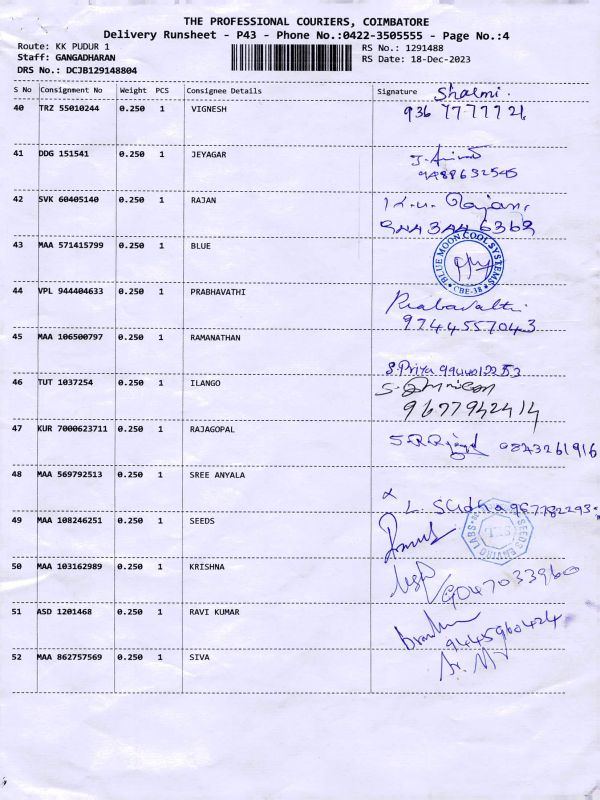 THE PROFESSIONAL COURIERS, COIMBATORE
Delivery Runsheet - P43 - Phone No.:0422-3505555 - Page No.:4
Route: KK PUDUR 1
RS No.: 1291488
Staff: GANGADHARAN
RS Date: 18-Dec-2023
DRS No.: DCJB129148804
S No Consignment No Weight PCS Consignee Details Signature
Shalmi.
40 TRZ 55010244 0.250 1 VIGNESH
936 7777721
41 DDG 151541 0.250 1 JEYAGAR
9488632545
42 SVK 60405140 0.250 1 RAJAN
Rajan,
43 MAA 571415799 0.250 1 BLUE
BLUE MOON COOL SYSTEMS
CBE-38
44 VPL 944404633 0.250 1 PRABHAVATHI
Prabavathi
45 MAA 106500797 0.250 1 RAMANATHAN
S.Priya
46 TUT 1037254 0.250 1 ILANGO
9677942414
47 KUR 7000623711 0.250 1 RAJAGOPAL
9843261916
48 MAA 569792513 0.250 1 SREE ANYALA
49 MAA 108246251 0.250 1 SEEDS
SEEDS ENVIRO LABS
50 MAA 103162989 0.250 1 KRISHNA
9047033960
51 ASD 1201468 0.250 1 RAVI KUMAR
9445960424
52 MAA 862757569 0.250 1 SIVA